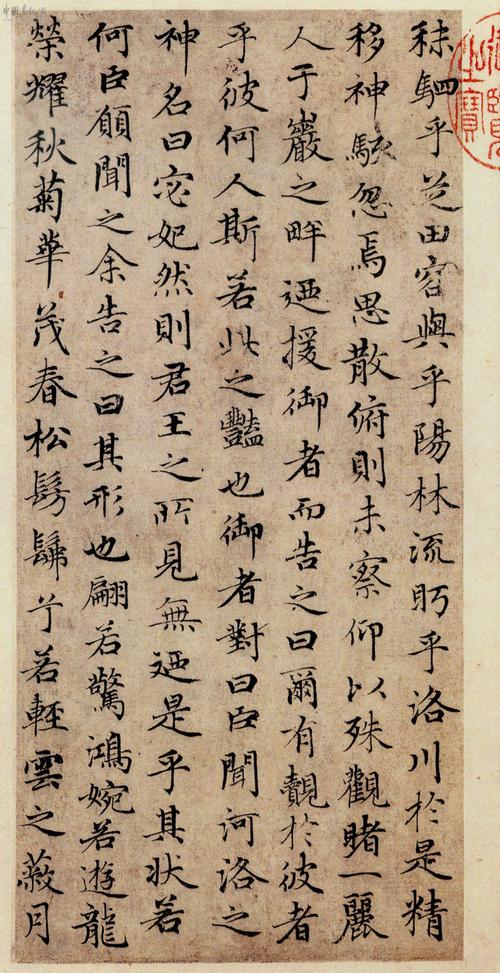 秣駟乎芝田容與乎陽林流眄乎洛川於是精
移神駭忽焉思散俯則未察仰以殊觀睹一麗
人于巖之畔迺援御者而告之曰爾有覿於彼者
乎彼何人斯若此之豔也御者對曰臣聞河洛之
神名曰宓妃然則君王之所見無迺是乎其狀若
何臣願聞之余告之曰其形也翩若驚鴻婉若遊龍
榮耀秋菊華茂春松髣髴兮若輕雲之蔽月
之寶